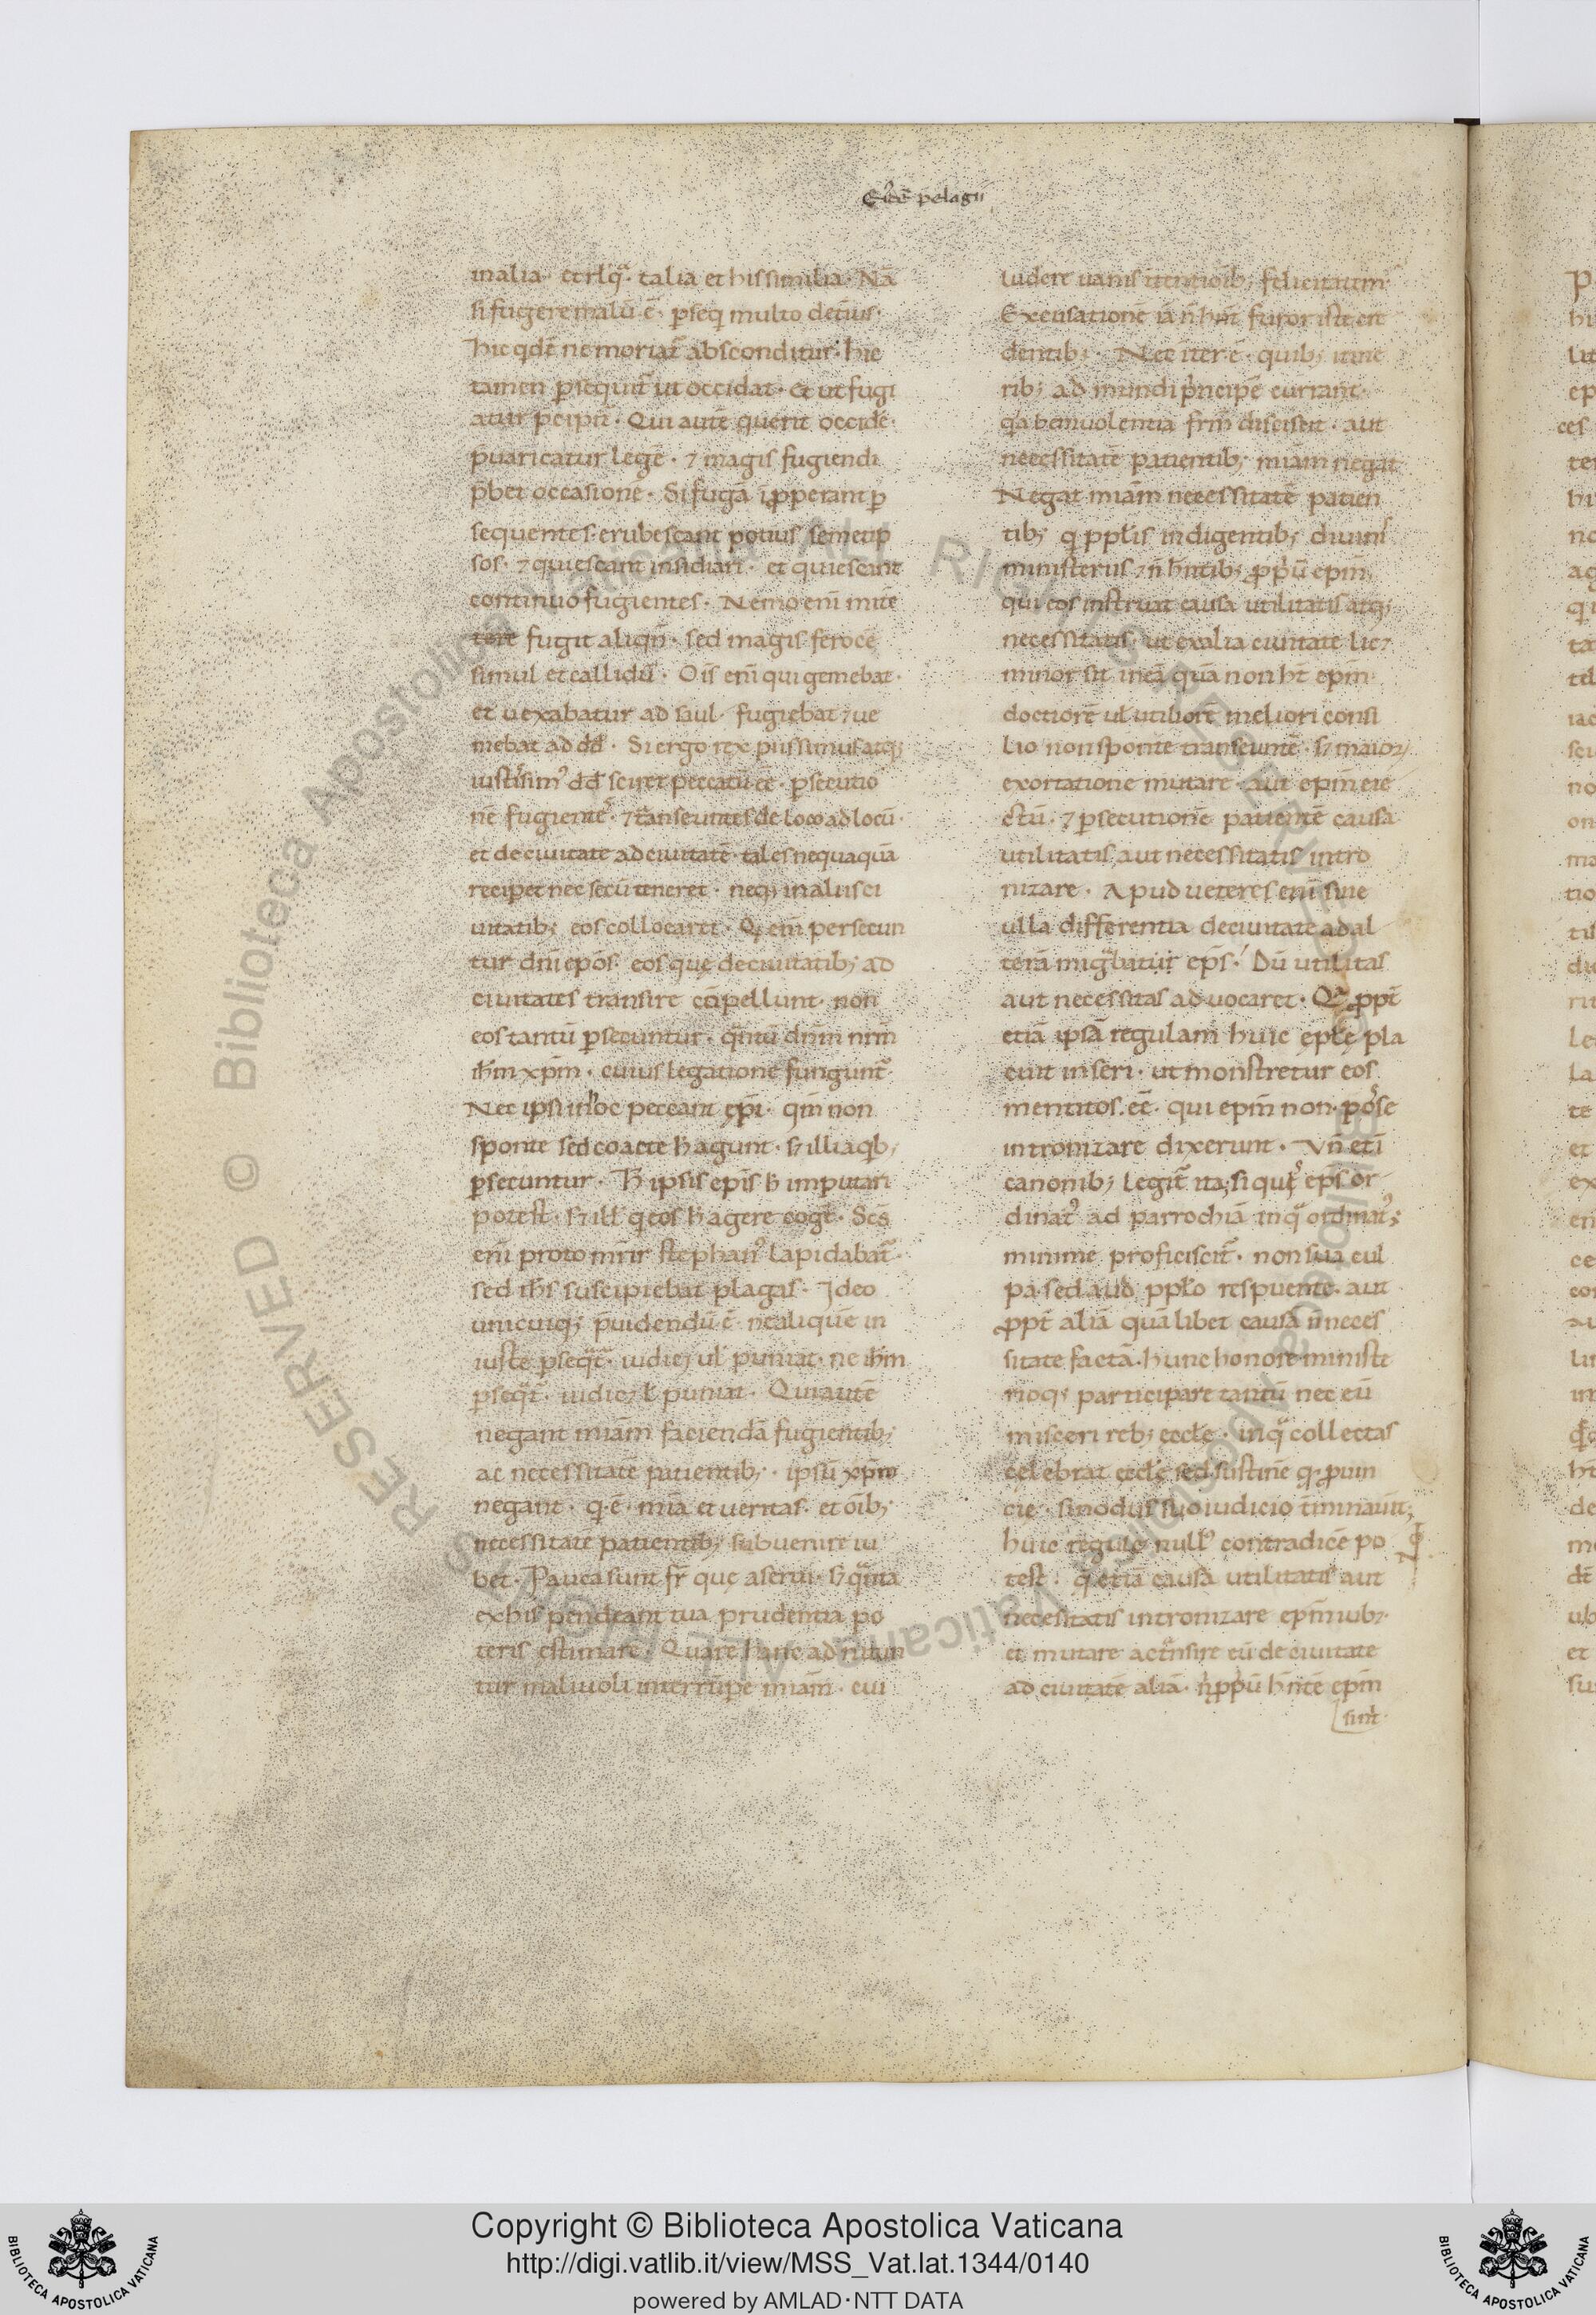 Eiusdē pelagii
malia· et rlq̄· talia et his similia· Nā
si fugere malū ē· ꝑseq̄ multo deti͛us·
hic q̄dē ne moriat᷑ absconditur· hic
tamen ꝑsequit᷑ ut occidat· et ut fugi
atur p̄cipit᷑· Qui autē querit occide͛·
p̄uaricatur legē· ⁊ magis fugiendi
p̄bet occasionē· Si fugā īꝓperant ꝑ
sequentes· erubescant potius semetip
sos· ⁊ quiescant insidiari· et quiescunt
continuo fugientes· Nemo eni᷑ mitē
fugit aliqn̄· sed magis ferocē
simul et callidū· Ois eni᷑ qui gemebat·
et uexabatur ad saul· fugiebat ⁊ ue
niebat ad dd̄· Si ergo rex piissimus atq;
iustissim᷒ dd̄ sciret peccatū eē· ꝑsecutio
nē fugiente͛· ⁊ transeuntes de loco ad locū·
et de ciuitate ad ciuitatē· tales nequaquā
reciperet nec secū teneret· neq; in aliis ci
uitatib; eos collocaret· Q̄ eni᷑ persecun
tur dn̄i ep̄os· eosque de ciuitatib; ad
ciuitates transire cōpellunt· non
eos tantū ꝑsecuntur· q̄ntū dn̄m nr̄m
ih̄m xp̄m· cuius legatione fungunt᷑·
Nec ipsi in hoc peccant ep̄i· qm̄ non
sponte sed coacte h̄ agunt· s; illi a q̄b;
ꝑsecuntur· H̄ ipsis ep̄is h̄ imputari
potest· s; ill' q̄ eos h̄ agere cogt᷑· Sc̄s
eni᷑ proto mr̄ir stephan᷒ lapidabat᷑·
sed ih̄s suscipiebat plagas· Ideo
unicuiq; p̄uidendū ē· ne aliquē in
iuste ꝑseqt᷑· iudicet ul' puniat· ne ih̄m
ꝑseqt᷑· iudicet ul' puniat· Qui autē
negant mīam faciendā fugientib;
ac necessitatē patientib;· ipsū xp̄m
negant· q̄ ē mīa et ueritas· et oīb;
necessitatē patientib; subuenire iu
bet· Pauca sunt fr̄ que aserui· s; q̄nta
ex his pendeant tua prudentia po
teris estimare· Quare hanc ad nitun
tur maliuoli interrūpe͛ mīam· cui
ludere uanis intentioib; felicitatum·
Excusationē iā n̄ hn̄t furor isti cre
dentib;· Nec iter ē· quib; itine
rib; ad mundi p̄ncipē currant·
q̄a beniuolentia fr̄m discisen· aut
necessitatē patientib; mīam negat
Negat mīam necessitatē patien
tib; q̄ ppl'is indigentib; diuinis
ministeriis ⁊ n̄ hn̄tib; ꝓpriū ep̄m·
qui eos instruat causa utilitatis atq;
necessitatis; ut ex alia ciuitate lic᷑
minor sit in eā quā non ht̄ ep̄m·
doctiorē ul' utiliorē meliori consi
lio non sponte transeuntē· s; maior;
exortatione mutare· aut ep̄m eie
ctū· ⁊ ꝑsecutionē patientē causa
utilitatis aut necessitatis intro
nizare· Apud ueteres eni᷑ sine
ulla differentia de ciuitate ad al
terā migrabatur ep̄s· Dū utilitas
aut necessitas aduocaret· Qua ꝓpt᷑
etiā ipsā regulam huic ep̄l'ę pla
cuit inseri· ut monstretur eos
mentitos eē· qui ep̄m non posse
intronizare dixerunt· Vn̄ eti᷑
canonib; legit᷑ ita; si quis ep̄s or
dinat᷒ ad parrochiā in q̄ ordinat᷒;
minime proficiscit᷑· non sua cul
pa· sed aud ppl'o respuente· aut
ꝓpt᷑ aliā quā libet causā n̄ neces
sitate factā· hunc honore ministe
rioq; participare tantū nec eū
misceri reb; eccl'e· in q̄ collectas
celebrat eccl'e· sed sustinē q̄ ꝓuin
cie sinodus suo iudicio t͛minauit;
huic regulę null᷒ contradice͛ po
test· q̄ etiā causā utilitatis aut
necessitatis intronizare ep̄m iub᷑·
et mutare ac transire eū de ciuitate
ad ciuitatē aliā· n̄ ꝓpriū hn̄tē ep̄m
sint·
Copyright © Biblioteca Apostolica Vaticana
http://digi.vatlib.it/view/MSS_Vat.lat.1344/0140
powered by AMLAD·NTT DATA
BIBLIOTECA APOSTOLICA VATICANA
BIBLIOTECA APOSTOLICA VATICANA